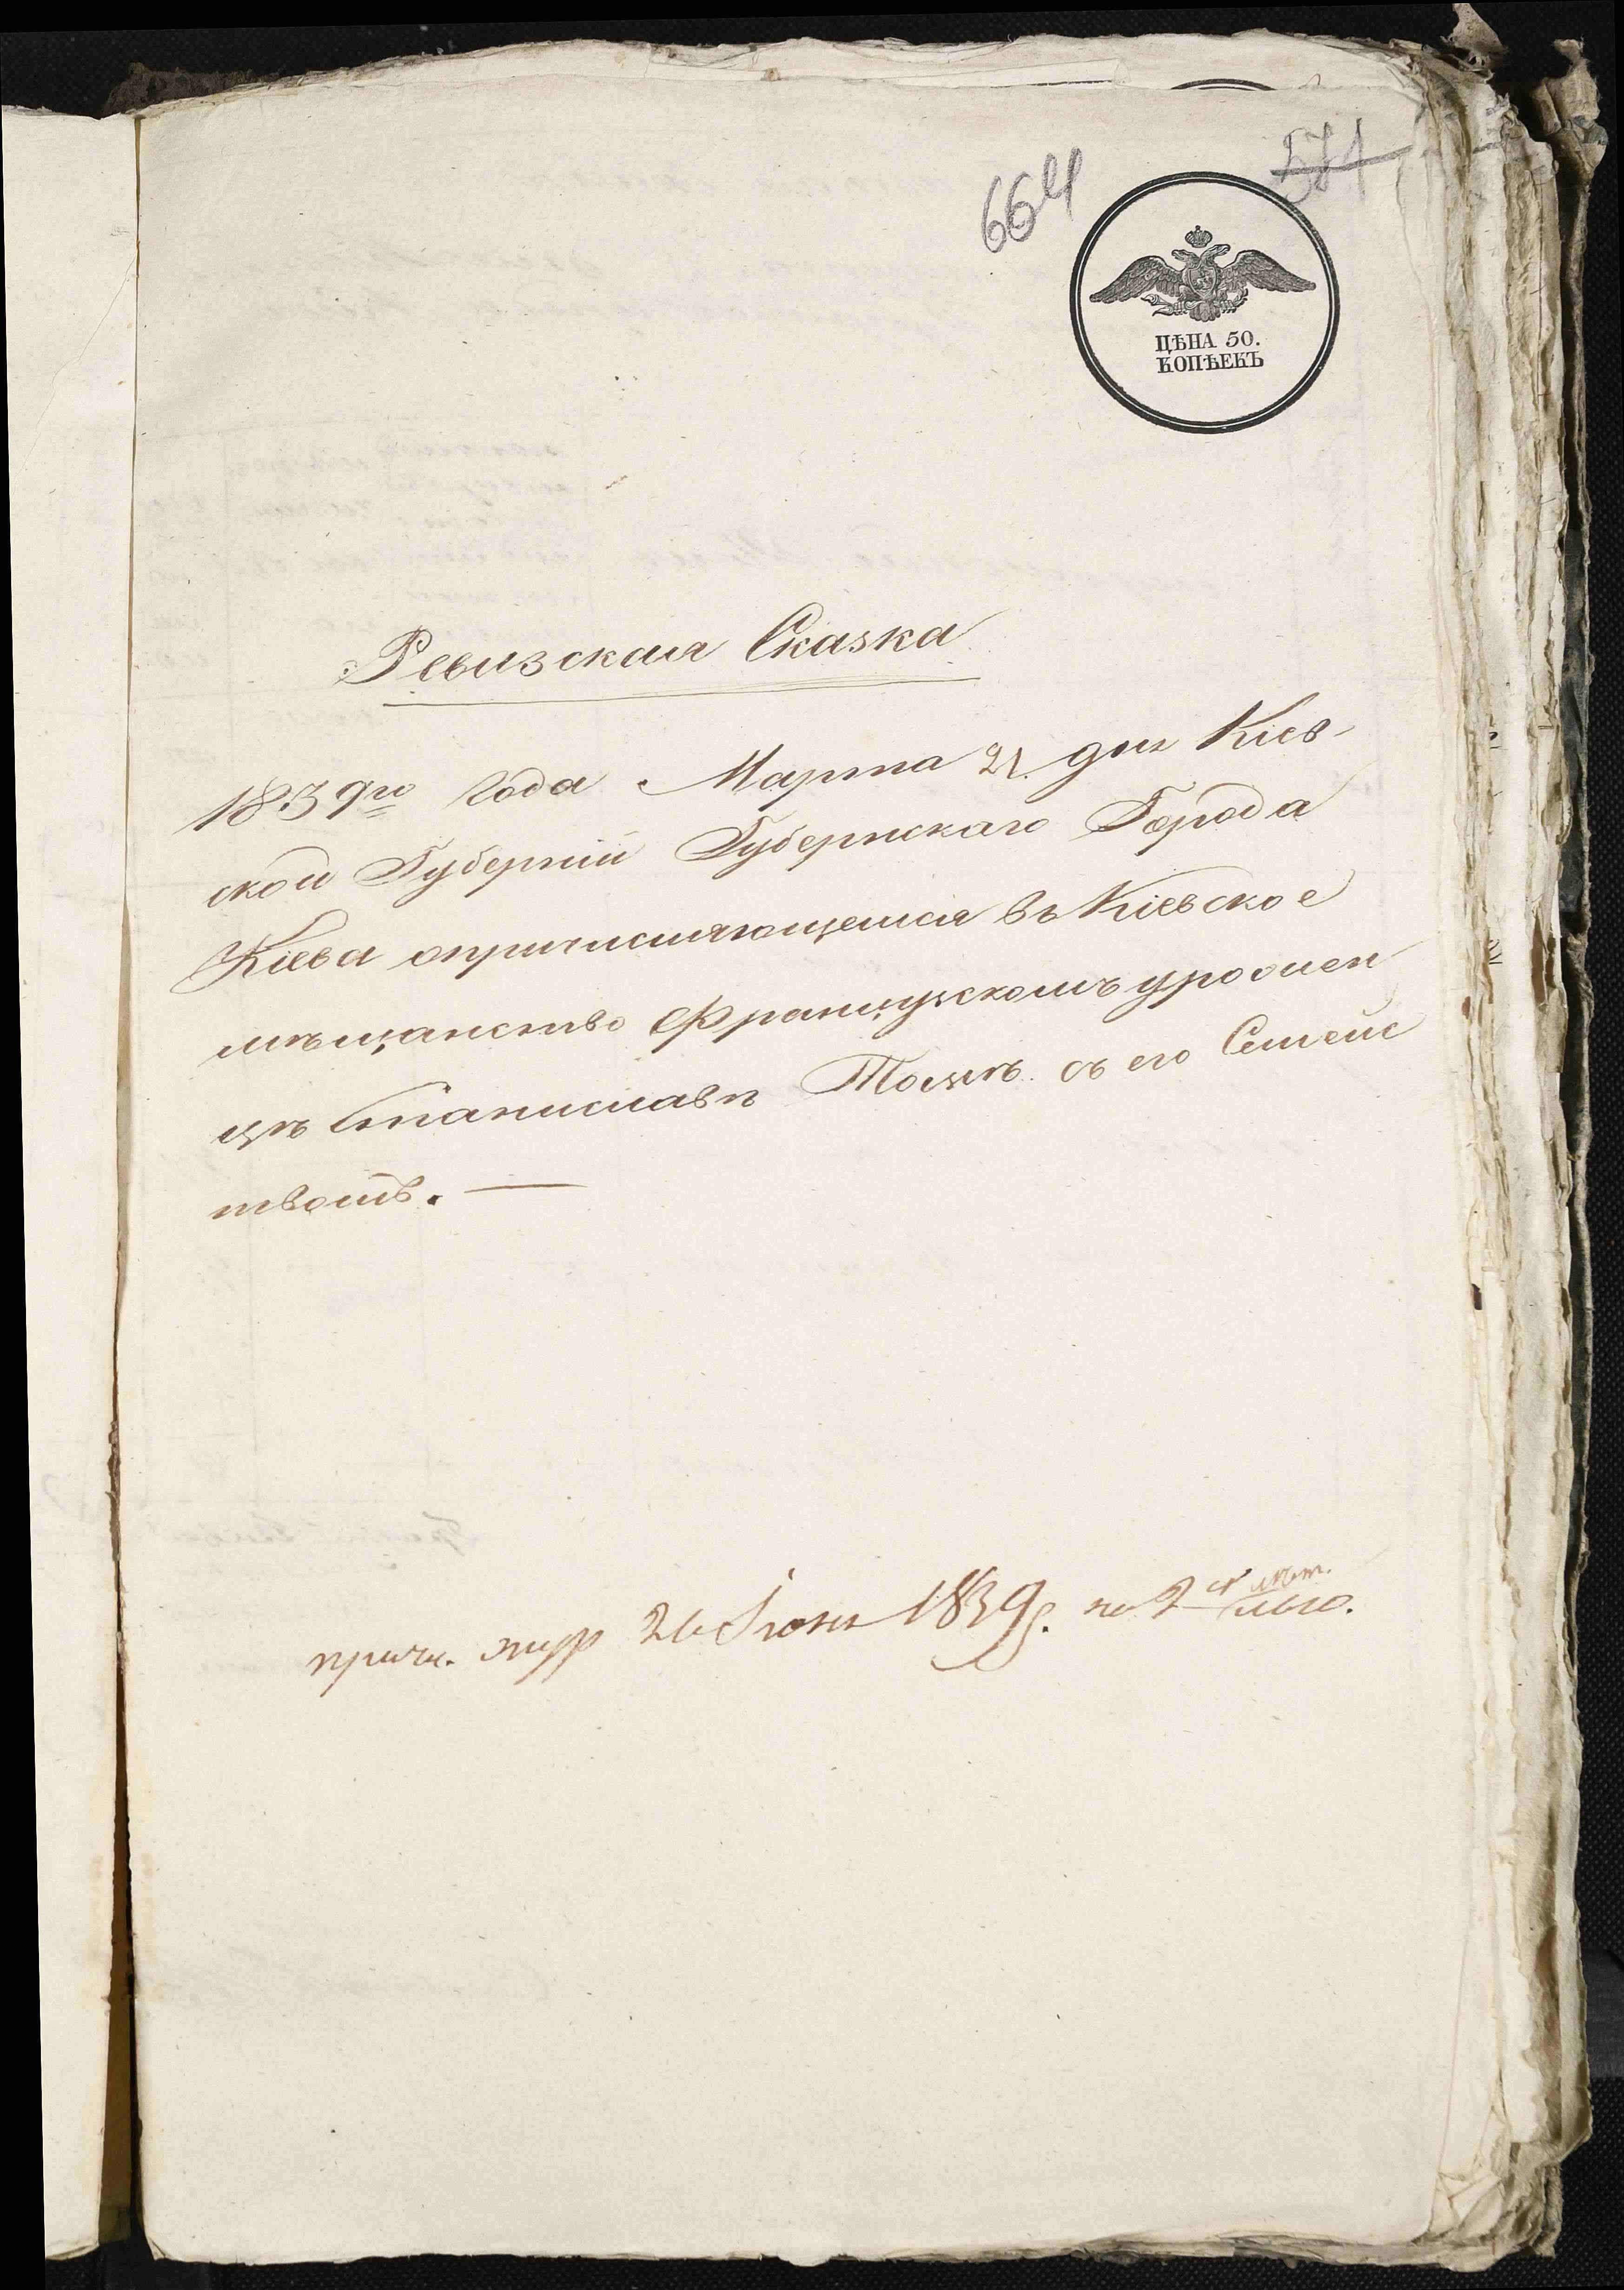 664
571
ЦѢНА 50.
КОПѢЕКЪ
Ревизская Сказка
1839го Года Марта 21. дня Кіев-
ской Губерніи Губернскаго Города
Кіева опричисляющемся въ Кіевское
мѣщанство Французскомъ урожен
цѣ Станиславѣ Томѣ съ его Семейс
твомъ. —
причи. жур 26 Іюня 1839 г. по 2